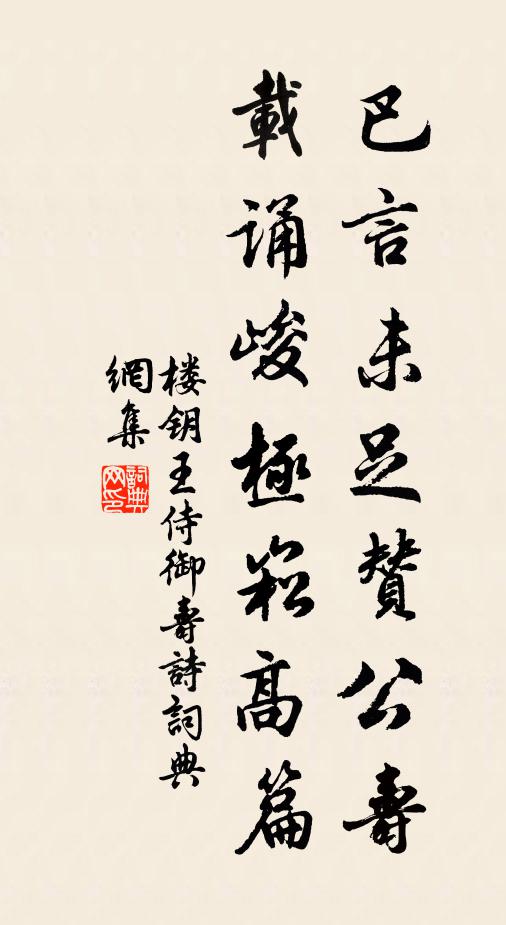 巴言未足賛公壽
載诵峻極崧高篇
楼钥王侍御壽詩詞典
網集
詞典
网印